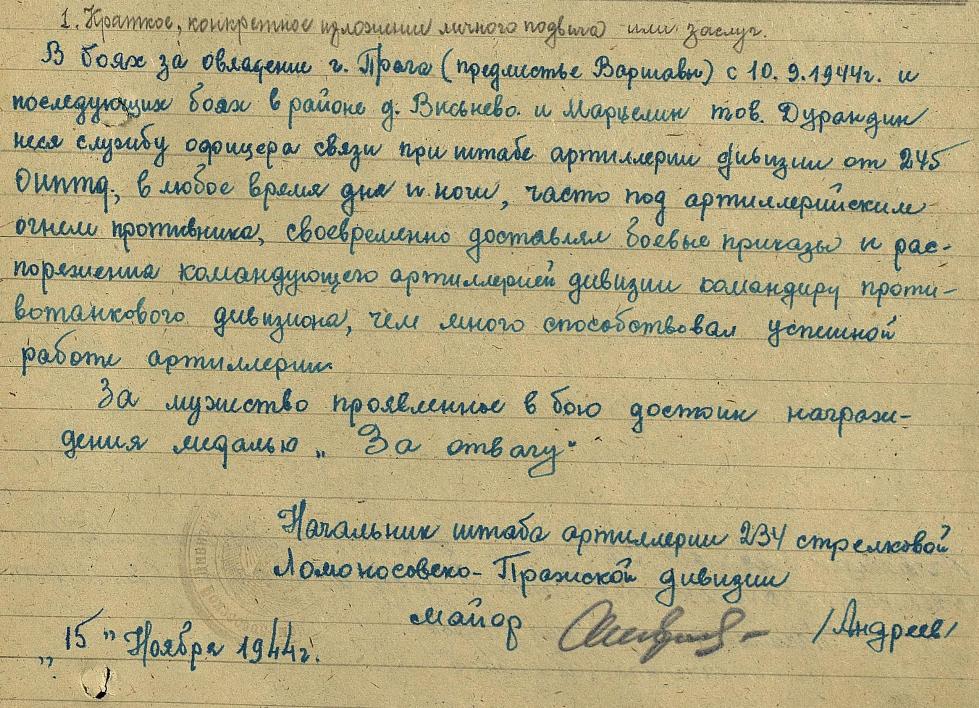 1. Краткое, конкретное изложение личного подвига или заслуг.
В боях за овладение г. Прага (предместье Варшавы) с 10.9.1944г. и
последующих боях в районе д. Висьнево и Марцелин тов. Дурандин
неся службу офицера связи при штабе артиллерии дивизии от 245
ОИПТД, в любое время дня и ночи, часто под артиллерийским
огнем противника, своевременно доставлял боевые приказы и рас-
поряжения командующего артиллерией дивизии командиру проти-
вотанкового дивизиона, чем много способствовал успешной
работе артиллерии.
За мужество проявленное в бою достоин награж-
дения медалью „За отвагу"
Начальник штаба артиллерии 234 стрелковой
Ломоносовско-Пражской дивизии
майор /Андреев/
„15" Ноября 1944г.